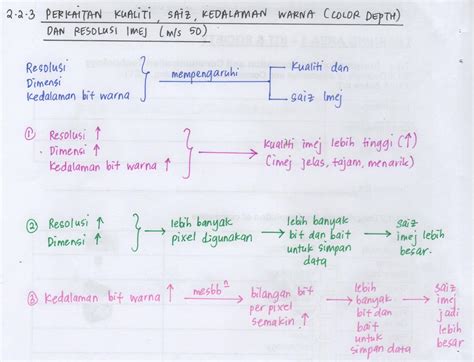 2.2.3 PERKAITAN KUALITI, SAIZ, KEDALAMAN WARNA (COLOR DEPTH)
DAN RESOLUSI IMEJ (m/s 50)
Resolusi
Dimensi
Kedalaman bit warna
mempengaruhi
Kualiti dan
saiz Imej
① Resolusi ↑
Dimensi ↑
Kedalaman bit warna ↑
Kualiti imej lebih tinggi (↑)
(imej jelas, tajam, menarik)
② Resolusi ↑
Dimensi ↑
lebih banyak
pixel digunakan
lebih banyak
bit dan bait
untuk simpan
data
saiz
imej lebih
besar.
③ Kedalaman bit warna ↑
mesbbⁿ
bilangan bit
per pixel
semakin ↑
lebih
banyak
bit dan
bait
untuk
simpan data
saiz
imej
jadi
lebih
besar